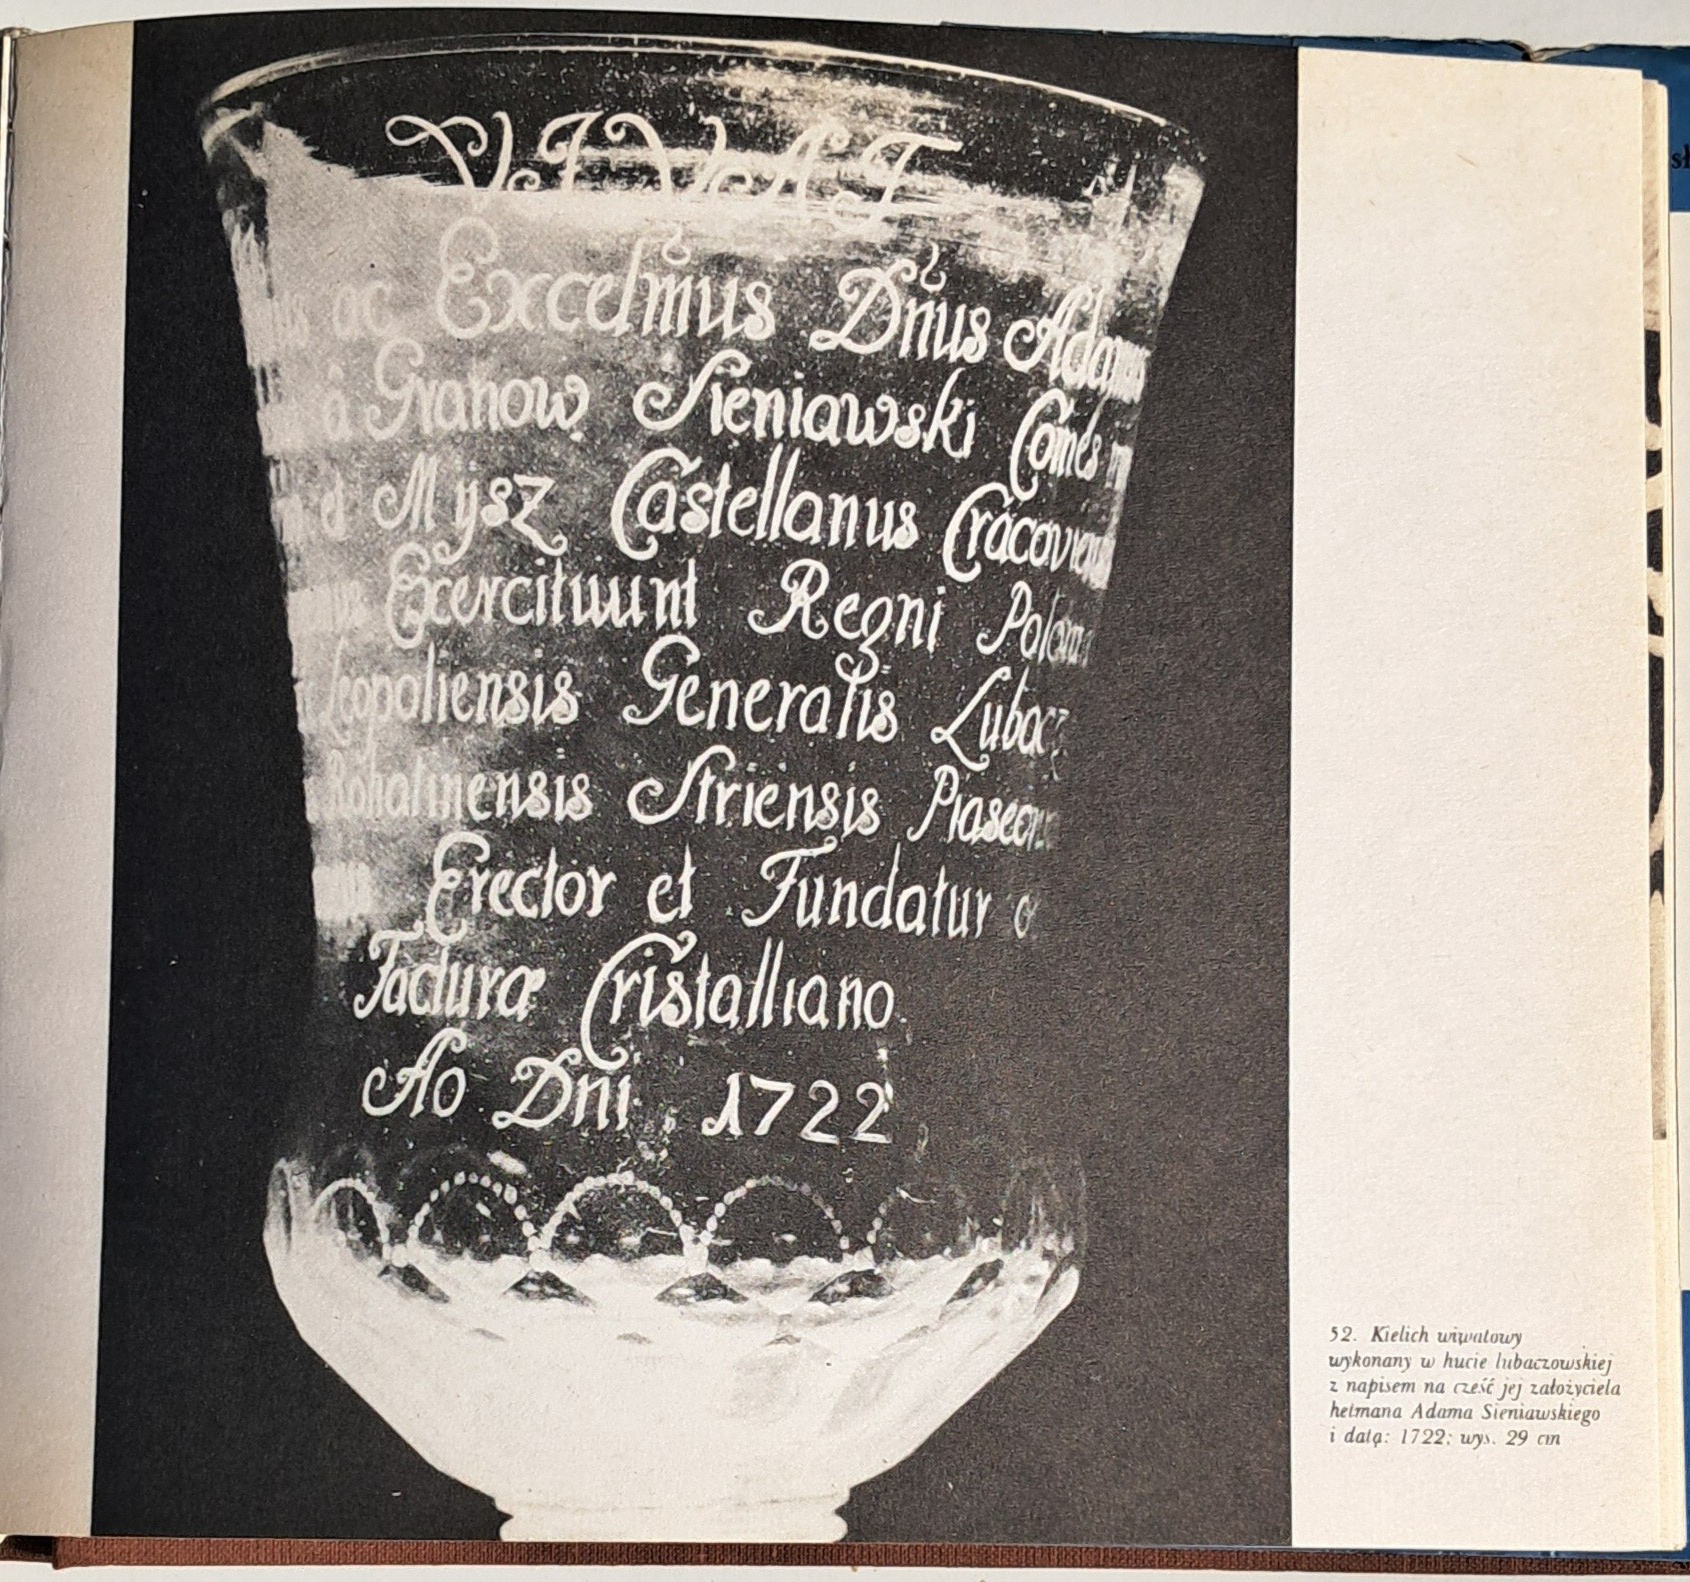 VIVAT
ac Excelm̃us Dñus Adam
à Granow Sieniawski Comes
d Mysz Castellanus
Exercituum Regni
Leopoliensis Generalis Lubacz
Rohatinensis Striensis Piasecz
Erector et Fundatur
Facturæ Cristalliano
Ao Dni 1722
52. Kielich wiwatowy
wykonany w hucie lubaczowskiej
z napisem na cześć jej założyciela
hetmana Adama Sieniawskiego
i datą: 1722; wys. 29 cm